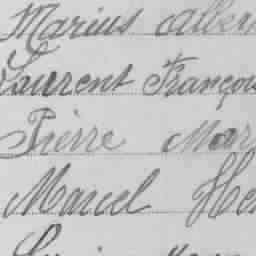 Marius Albert
Laurent François
Pierre Mar
Marcel Hen